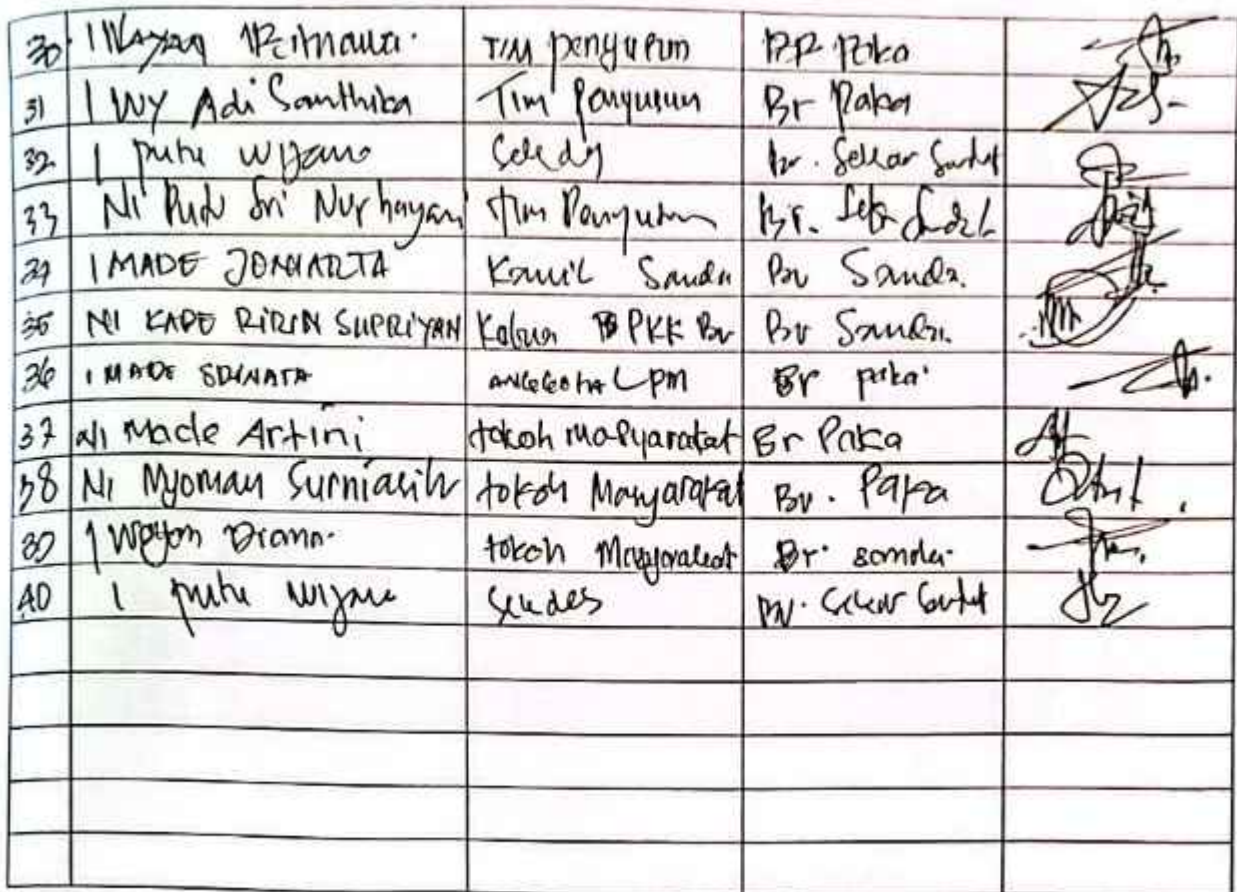 30. I Wayan Tim penyusun Br Paka
31 I WY Adi Santhika Tim Penyusun Br Paka
32. I Putu Wijana Sekdes Br. Sekar Sandat
33 Ni Putu Sri Nurhayani Tim Penyusun Br. Sekar Sandat
34 I MADE JONIARTA Sanda Br Sanda.
35 NI KADE RIRIN SUPRIYAN Ketua PKK Br Br Sanda.
36 I MADE ANGGOTA LPM Br paka
37 Ni Made Artini tokoh masyarakat Br Paka
38 Ni Nyoman Surniasih tokoh Masyarakat Br. Paka
39 I Wayan tokoh Masyarakat Br. sanda.
40 I Putu Wijana Sekdes Br. Sekar Sandat